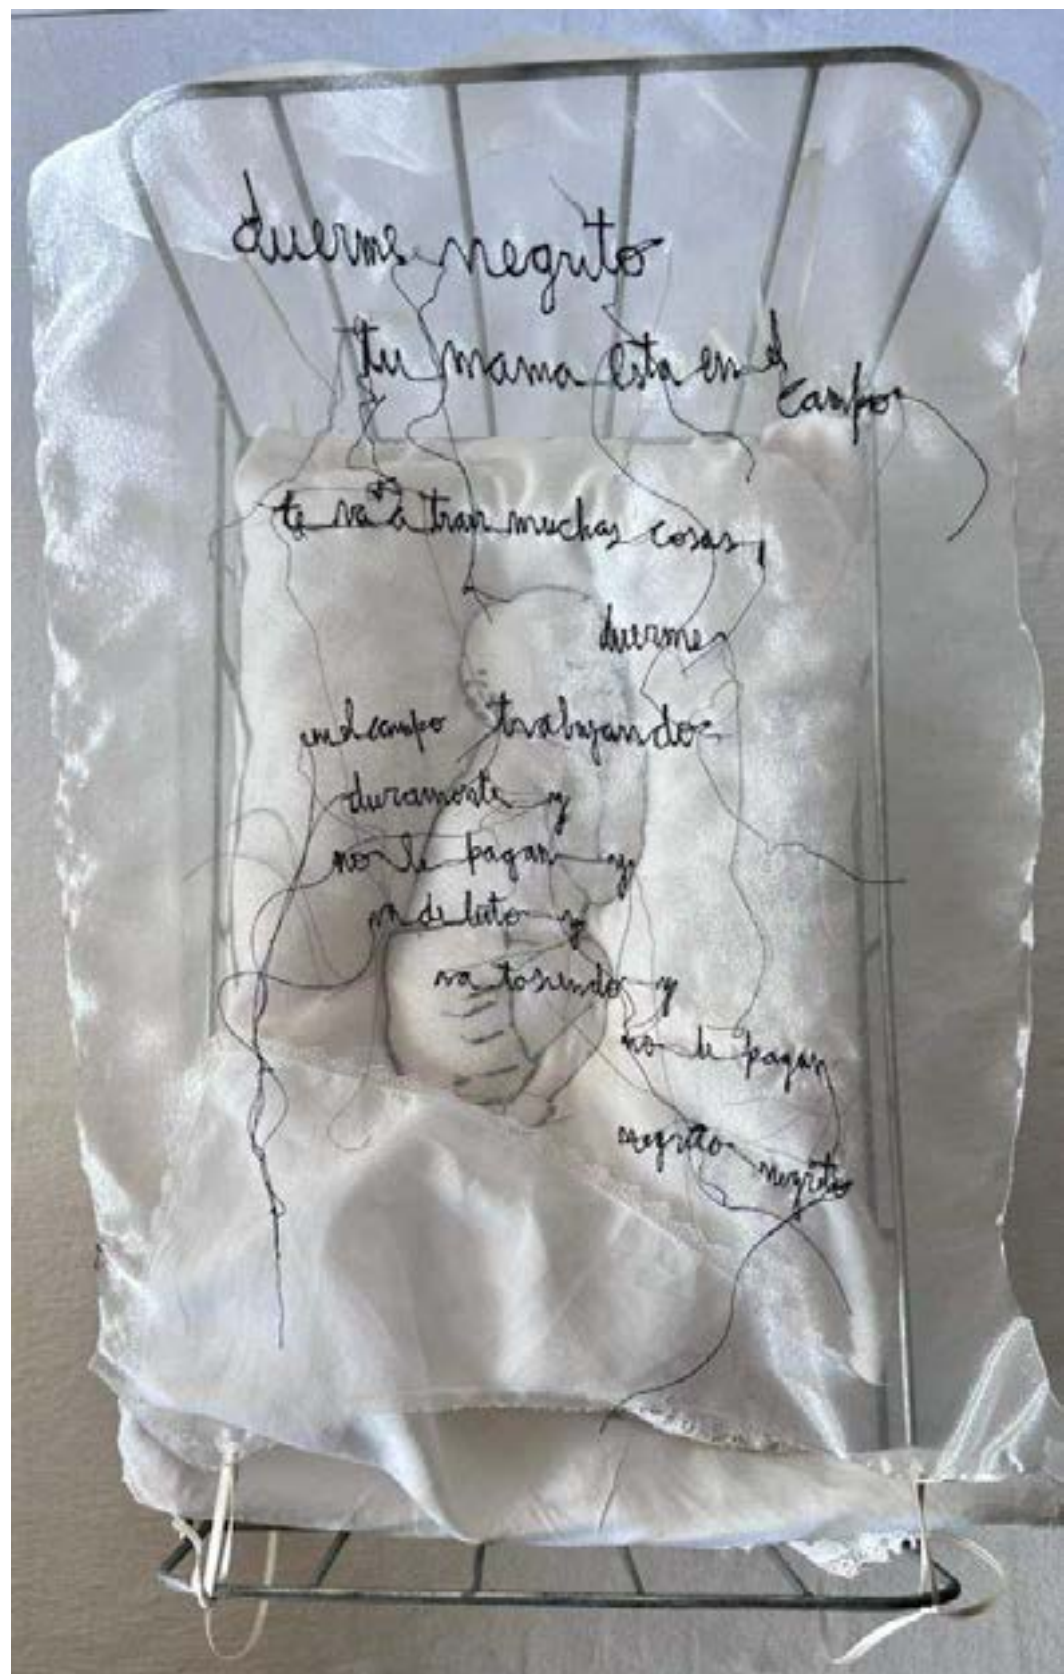 duerme negrito
tu mama esta en el
campo
te va a traer muchas cosas,
duerme
en el campo trabajando
duramente y
no le pagan y
va de luto y
va tosiendo y
no le pagan
negrito negrito